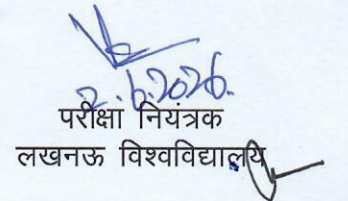 2.6.2026.
परीक्षा नियंत्रक
लखनऊ विश्वविद्यालय